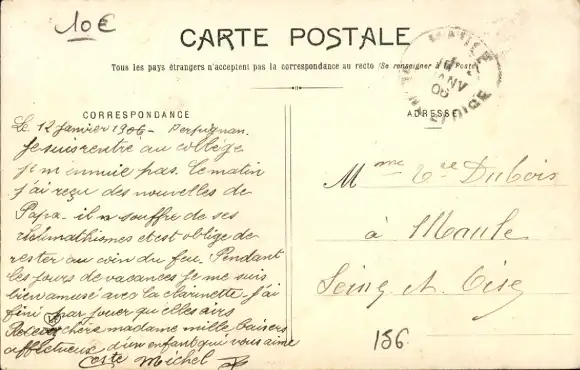 10€
CARTE POSTALE
Tous les pays étrangers n'acceptent pas la correspondance au recto (Se renseigner à la Poste)
CORRESPONDANCE
Le 12 Janvier 1906 - Perpignan.
Je suis rentré au collège
je m ennuie pas. Ce matin
j'ai reçu des nouvelles de
Papa - il souffre de ses
rhumathismes et est obligé de
rester au coin du feu. Pendant
les jours de vacances je me suis
bien amusé avec la clarinette. j'ai
fini par jouer quelles airs
Recevez chère madame mille baisers
affectueux d'un enfant qui vous aime
Michel
ADRESSE
Mme Dubois
à Maule
Seine et Oise
156
JANV
06